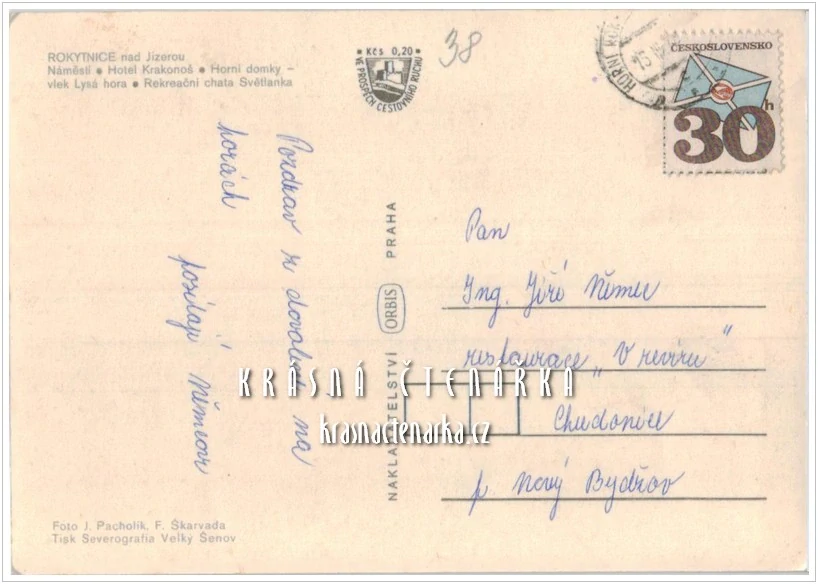 ROKYTNICE nad Jizerou
Náměstí ● Hotel Krakonoš ● Horní domky –
vlek Lysá hora ● Rekreační chata Světlanka
Kčs 0,20
VE PROSPĚCH CESTOVNÍHO RUCHU
38
HORNÍ
15
ČESKOSLOVENSKO
30h
Pozdrav z dovolené na
horách
posílají Němcovi
NAKLADATELSTVÍ ORBIS PRAHA
Pan
Ing. Jiří Němec
restaurace „V revíru"
Chudonice
p. Nový Bydžov
KRÁSNÁ ČTENÁŘKA
krasnactenarka.cz
Foto J. Pacholík, F. Škarvada
Tisk Severografia Velký Šenov